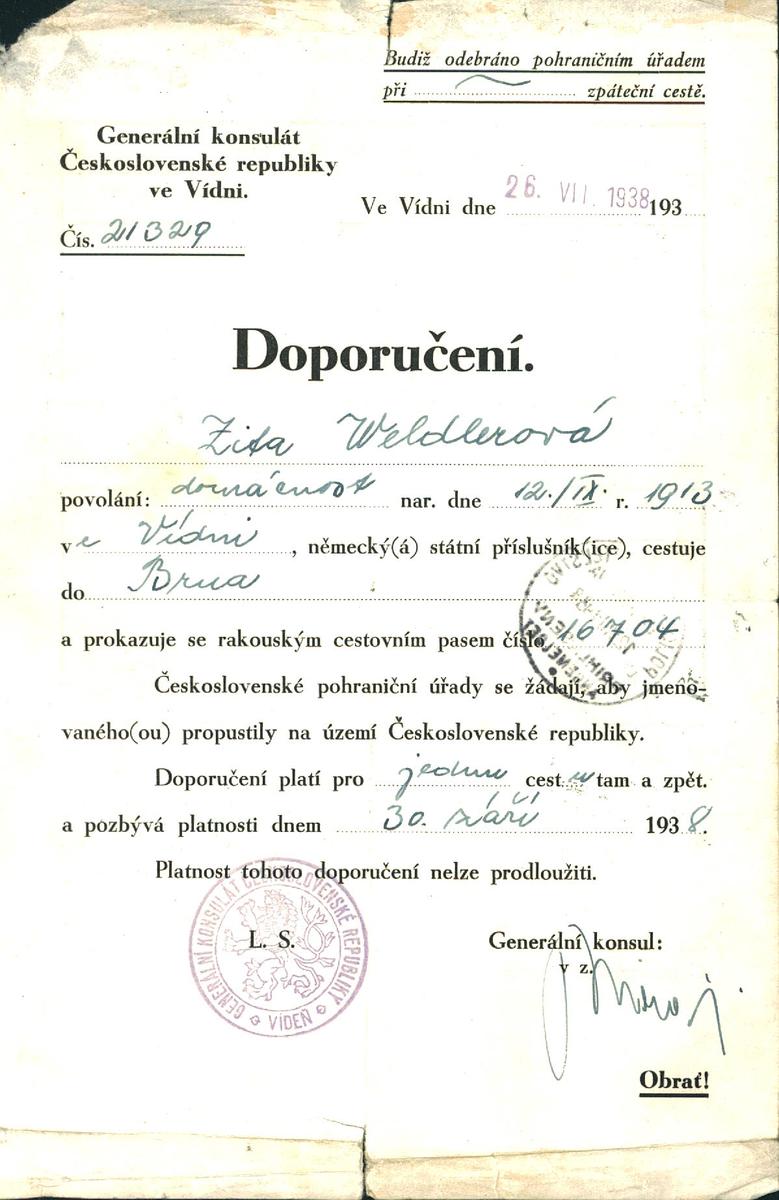 Budiž odebráno pohraničním úřadem
při ........ zpáteční cestě.
Generální konsulát
Československé republiky
ve Vídni.
Ve Vídni dne 26. VII. 1938 193
Čís. 21329
Doporučení.
Zita Weldlerová
povolání: domácnost nar. dne 12./IX. r. 1913
ve Vídni, německý(á) státní příslušník(ice), cestuje
do Brna
a prokazuje se rakouským cestovním pasem číslo 16704
Československé pohraniční úřady se žádají, aby jmeno-
vaného(ou) propustily na území Československé republiky.
Doporučení platí pro jednu cestu tam a zpět.
a pozbývá platnosti dnem 30. září 1938.
Platnost tohoto doporučení nelze prodloužiti.
GENERÁLNÍ KONSULÁT ČESKOSLOVENSKÉ REPUBLIKY
VÍDEŇ
L. S.
Generální konsul:
v z.
Obrať!